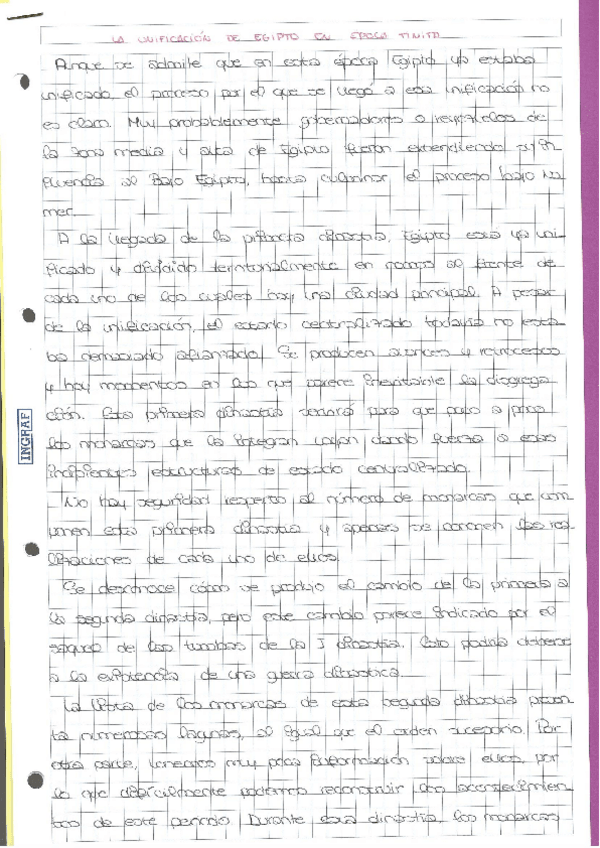 LA UNIFICACIÓN DE EGIPTO EN ÉPOCA TINITA
Aunque se admite que en esta época Egipto ya estaba
unificado el proceso por el que se llegó a esa unificación no
es claro. Muy probablemente gobernadores o de
la zona media y alta de Egipto fueron extendiendo su in
fluencia al Bajo Egipto, hasta culminar el proceso bajo Na
mer.
A la llegada de la primera dinastía, Egipto está ya uni
ficado y dividido territorialmente en nomos al frente de
cada uno de los cuales hay una ciudad principal. A pesar
de la unificación, el estado centralizado todavía no esta
ba demasiado afianzado. Se producen avances y retrocesos
y hay momentos en los que parece inevitable la disgrega
ción. Esta primera dinastía servirá para que paso a paso
los monarcas que la integran vayan dando fuerza a esas
incipientes estructuras de estado centralizado.
No hay seguridad respecto al número de monarcas que com
ponen esta primera dinastía y apenas se conocen las rea
lizaciones de cada uno de ellos.
Se desconoce cómo se produjo el cambio de la primera a
la segunda dinastía, pero este cambio parece indicado por el
saqueo de las tumbas de la I dinastía. Esto podría deberse
a la existencia de una guerra dinástica.
La lista de los monarcas de esta segunda dinastía presen
ta numerosas lagunas, al igual que el orden sucesorio. Por
otra parte, tenemos muy poca información sobre ellos, por
lo que difícilmente podemos reconstruir los acontecimien
tos de este periodo. Durante esta dinastía, los monarcas
INGRAF